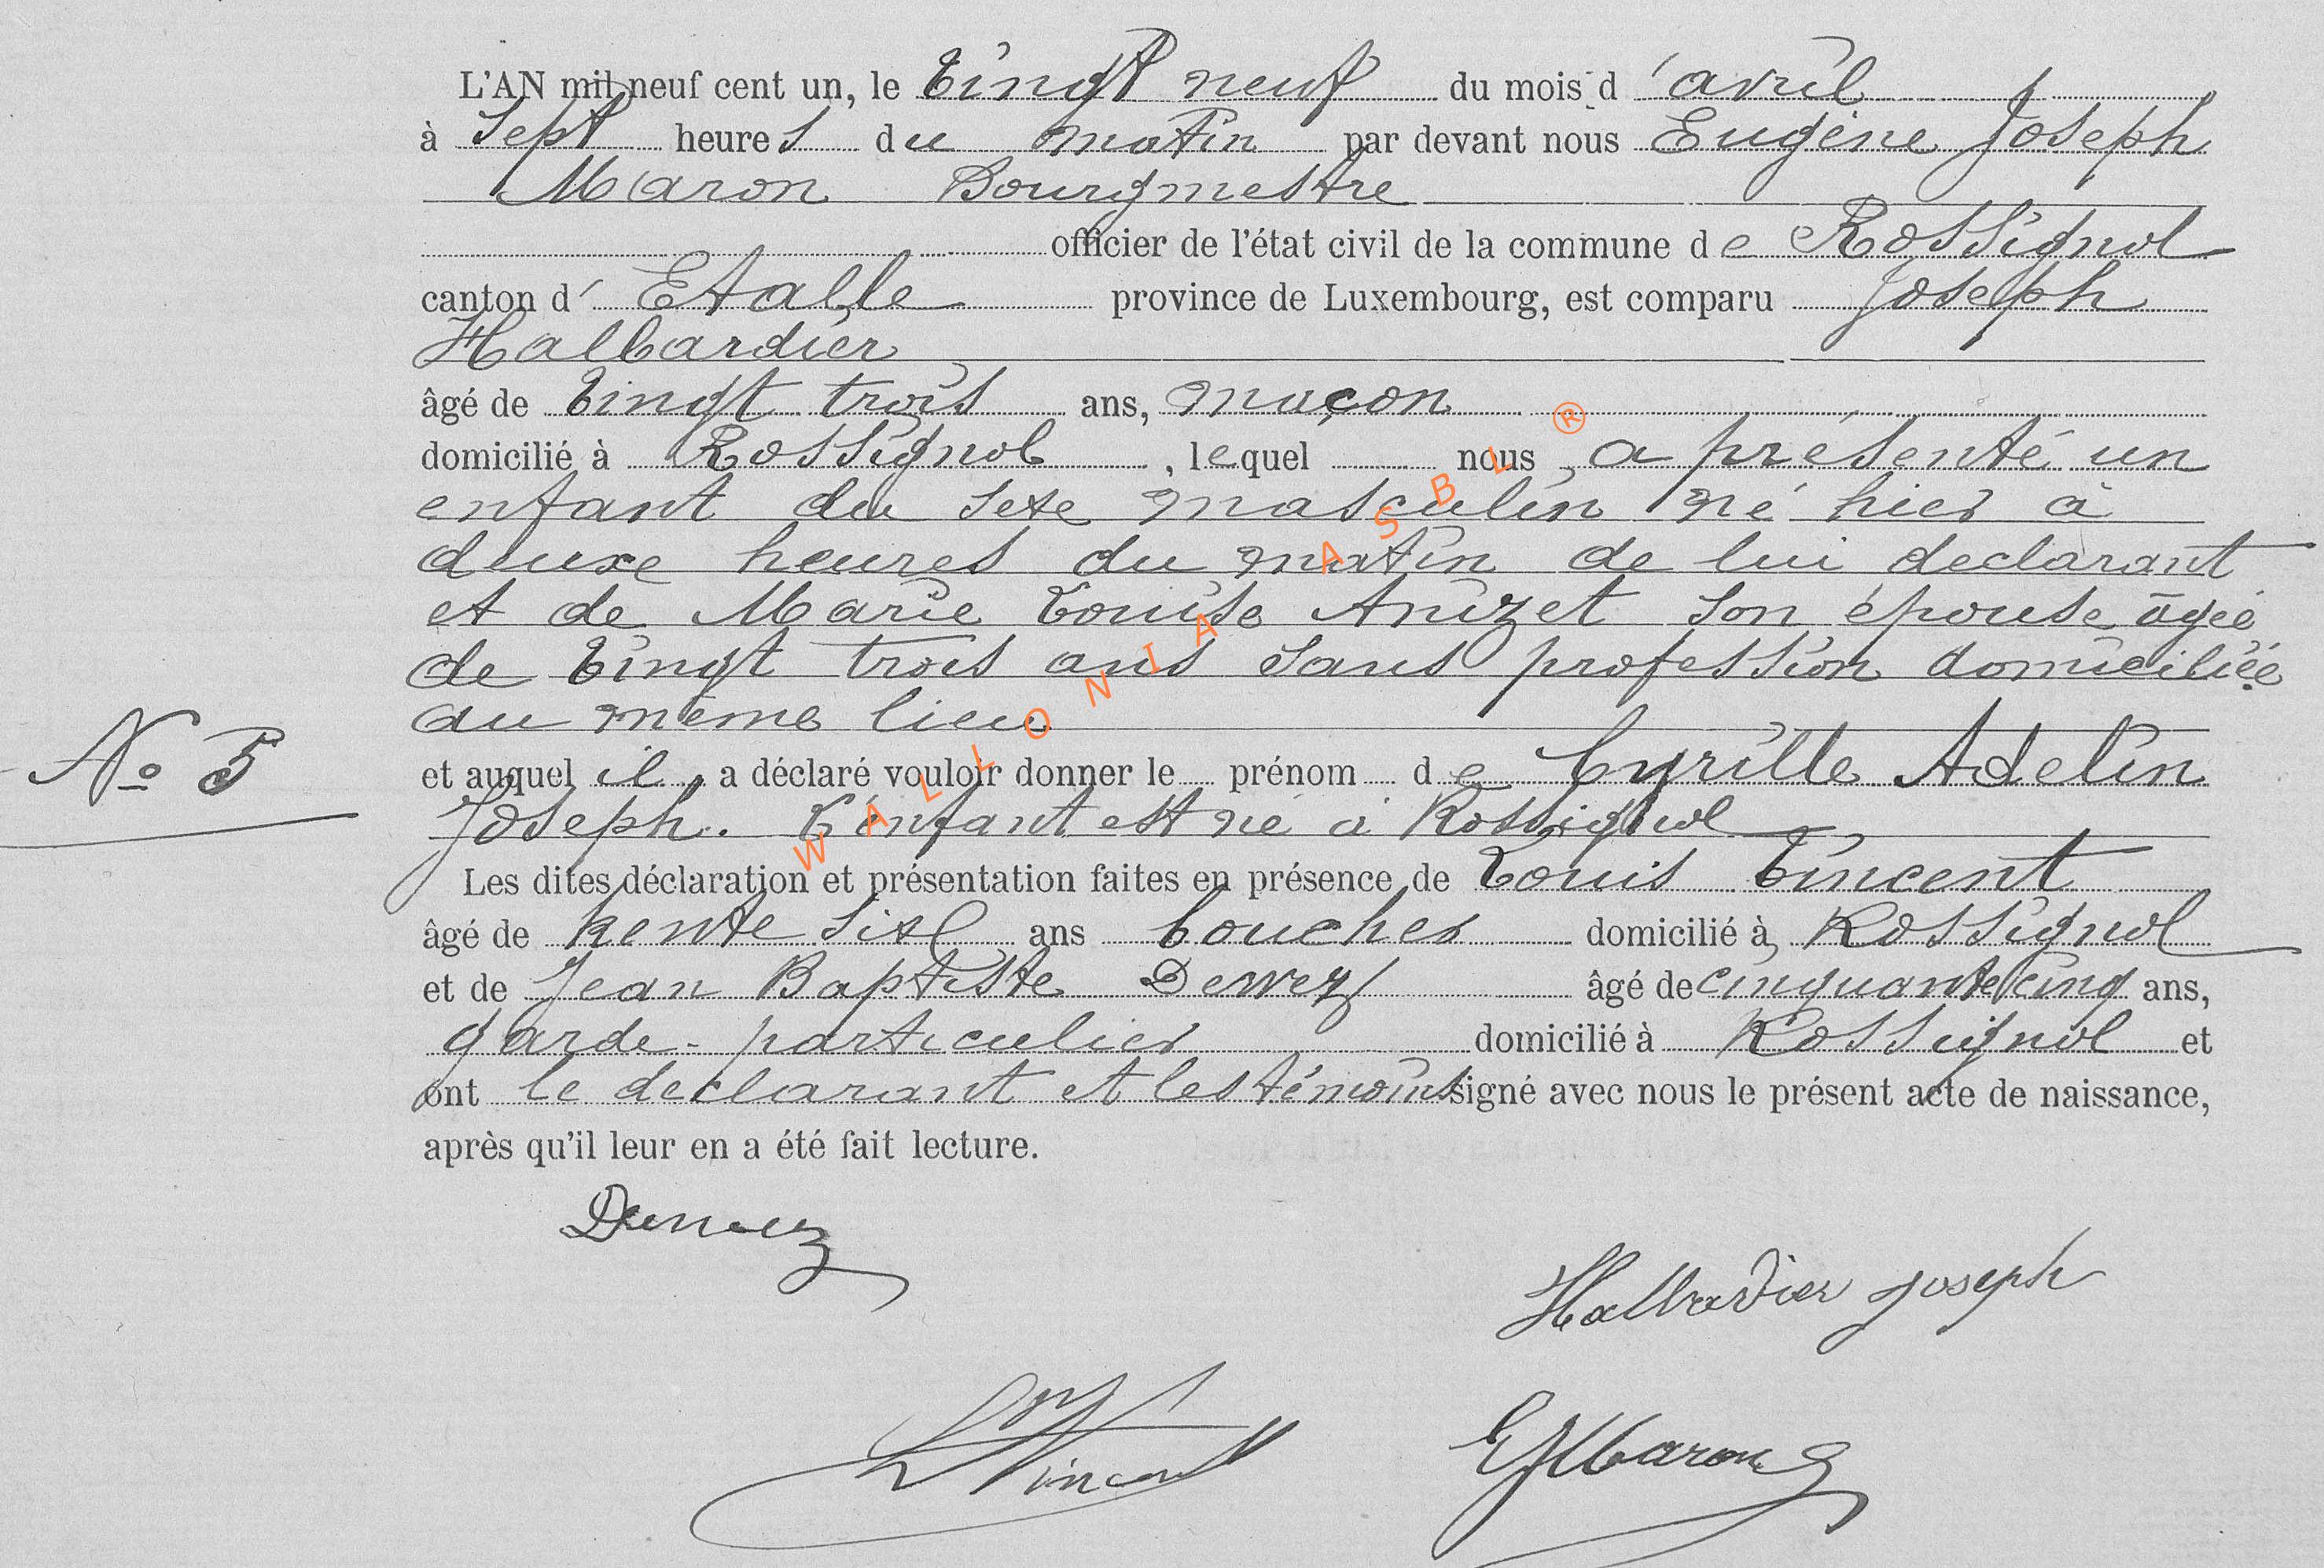 L'AN mil neuf cent un, le Vingt neuf du mois d'avril
à Sept heures du matin par devant nous Eugène Joseph
Maron Bourgmestre
officier de l'état civil de la commune de Rossignol
canton d'Etalle province de Luxembourg, est comparu Joseph
Halbardier
âgé de Vingt trois ans, maçon
domicilié à Rossignol, lequel nous a présenté un
enfant du sexe masculin né hier à
deuxe heures du matin de lui declarant
et de Marie Louise Anizet son épouse âgée
de Vingt trois ans sans profession domiciliée
au même lieu
N° 5
et auquel il a déclaré vouloir donner le prénom de Cyrille Adelin
Joseph. L'enfant est né à Rossignol
Les dites déclaration et présentation faites en présence de Louis Vincent
âgé de trente six ans boucher domicilié à Rossignol
et de Jean Baptiste âgé de cinquante cinq ans,
garde-particulier domicilié à Rossignol et
ont le declarant et les témoins signé avec nous le présent acte de naissance,
après qu'il leur en a été fait lecture.
Halbardier Joseph
L Vincent
EJMaron
WALLONIA ASBL ®